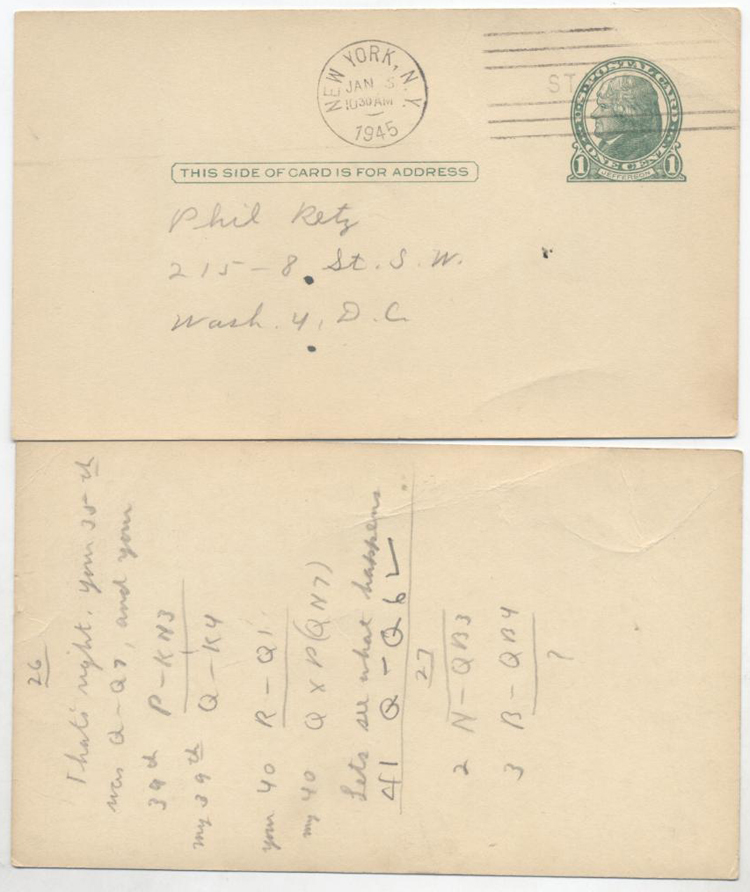 NEW YORK, N.Y.
JAN 5
10 30 AM
1945
ST
U.S. POSTAL CARD
1 ONE CENT 1
JEFFERSON
THIS SIDE OF CARD IS FOR ADDRESS
Phil Retz
215 - 8 St. S.W.
Wash. 4, D.C.
26
That's right, your 35th
was Q-Q7, and your
39th P-KN3
my 39th Q-K4
your 40 R-Q1
my 40 Q x P(QN7)
Lets see what happens
41 Q-Q6
27
2 N-QB3
3 B-QN4
?